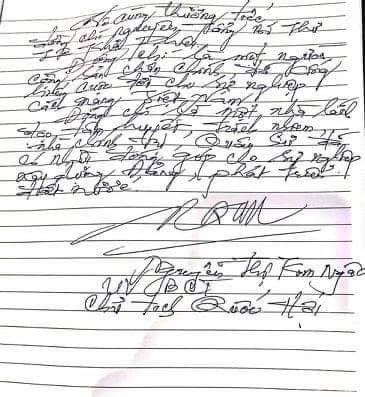 Vô cùng thương tiếc
đồng chí nguyên Tổng Bí thư
Lê Khả Phiêu
Đồng chí là một người
cộng sản chân chính, đã cống
hiến cuộc đời cho sự nghiệp
cách mạng Việt Nam
Đồng chí là một nhà lãnh
đạo tâm huyết, trách nhiệm
nhà chính trị, Quân sự đã
có nhiều đóng góp cho sự nghiệp
xây dựng Đảng, phát triển
đất nước
Nguyễn Thị Kim Ngân
UV BCT
Chủ tịch Quốc Hội